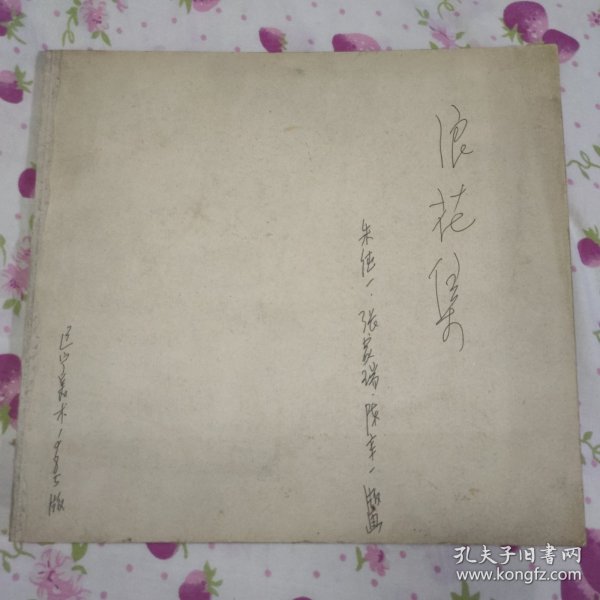 浪花集
朱佳一·张家瑞·陈聿一版画
辽宁美术1985版
孔夫子旧书网
www.kongfz.com